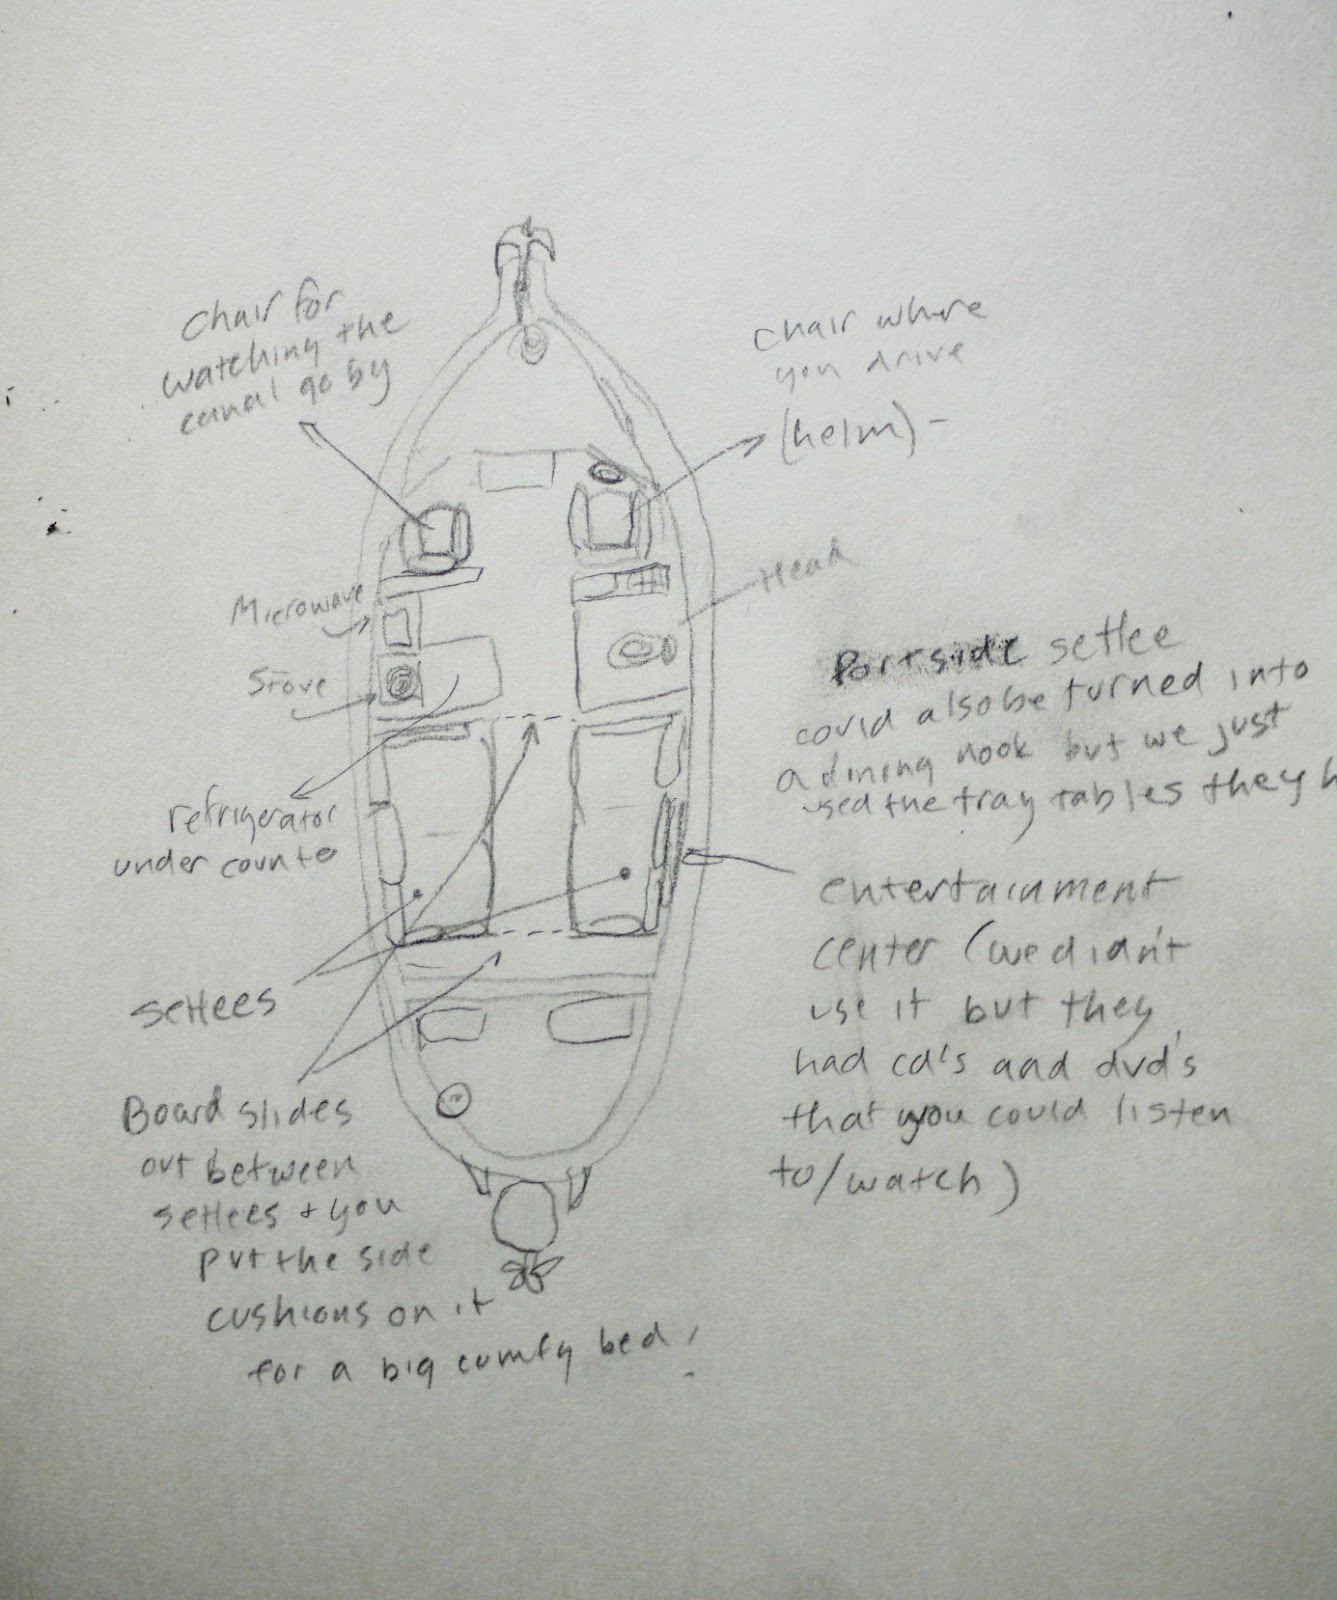 chair for
watching the
canal go by
chair where
you drive
(helm) -
Head
Microwave
Stove
refrigerator
under counte
Portside settee
could also be turned into
a dining nook but we just
used the tray tables they h
entertainment
center (we didn't
use it but they
had cd's and dvd's
that you could listen
to/watch)
settees
Board slides
out between
settees + you
put the side
cushions on it
for a big comfy bed!